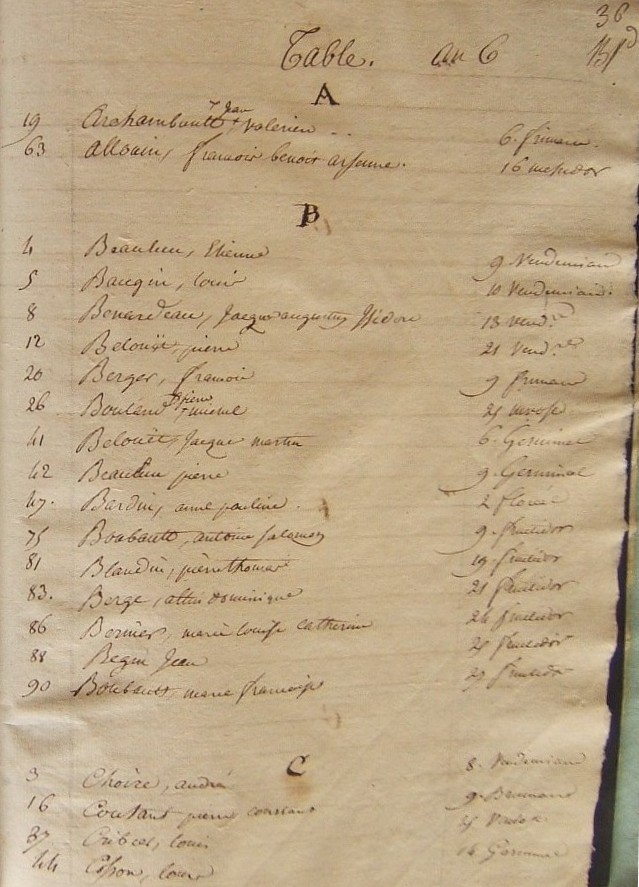 36
Table. an 6
A
19 Archambault, Jean valerien 6. frimaire
63 Allouin, francois benoit arsenne. 16 messidor
B
4 Beaulieu, Etienne 9 Vendemiaire
5 Baugin, louis 10 Vendemiaire
8 Bonardeau, Jacque augustin Isidore 13 vend.re
12 Belouet, pierre 21 vend.re
20 Berger, francois 9 frimaire
26 pierre michel 25 nivose
41 Belouet, Jacque martin 6. Germinal
42 Beaulieu pierre 9. Germinal
47. Bardin, anne pauline. 2 floreal
75 Boubault, antoine salomon 9. fructidor
81 Blandin, pierre thomas 19. fructidor
83. Berge, dominique 21 fructidor
86 Bernier, marie louise catherine 24 fructidor
88 Begin Jean 25 fructidor
90 Boubault, marie francoise 29 fructidor
C
3 Choire, andré 8. Vendemiaire
16 Coutant pierre constant 9. Brumaire
37 louis 25
44 louis 14 Germinal